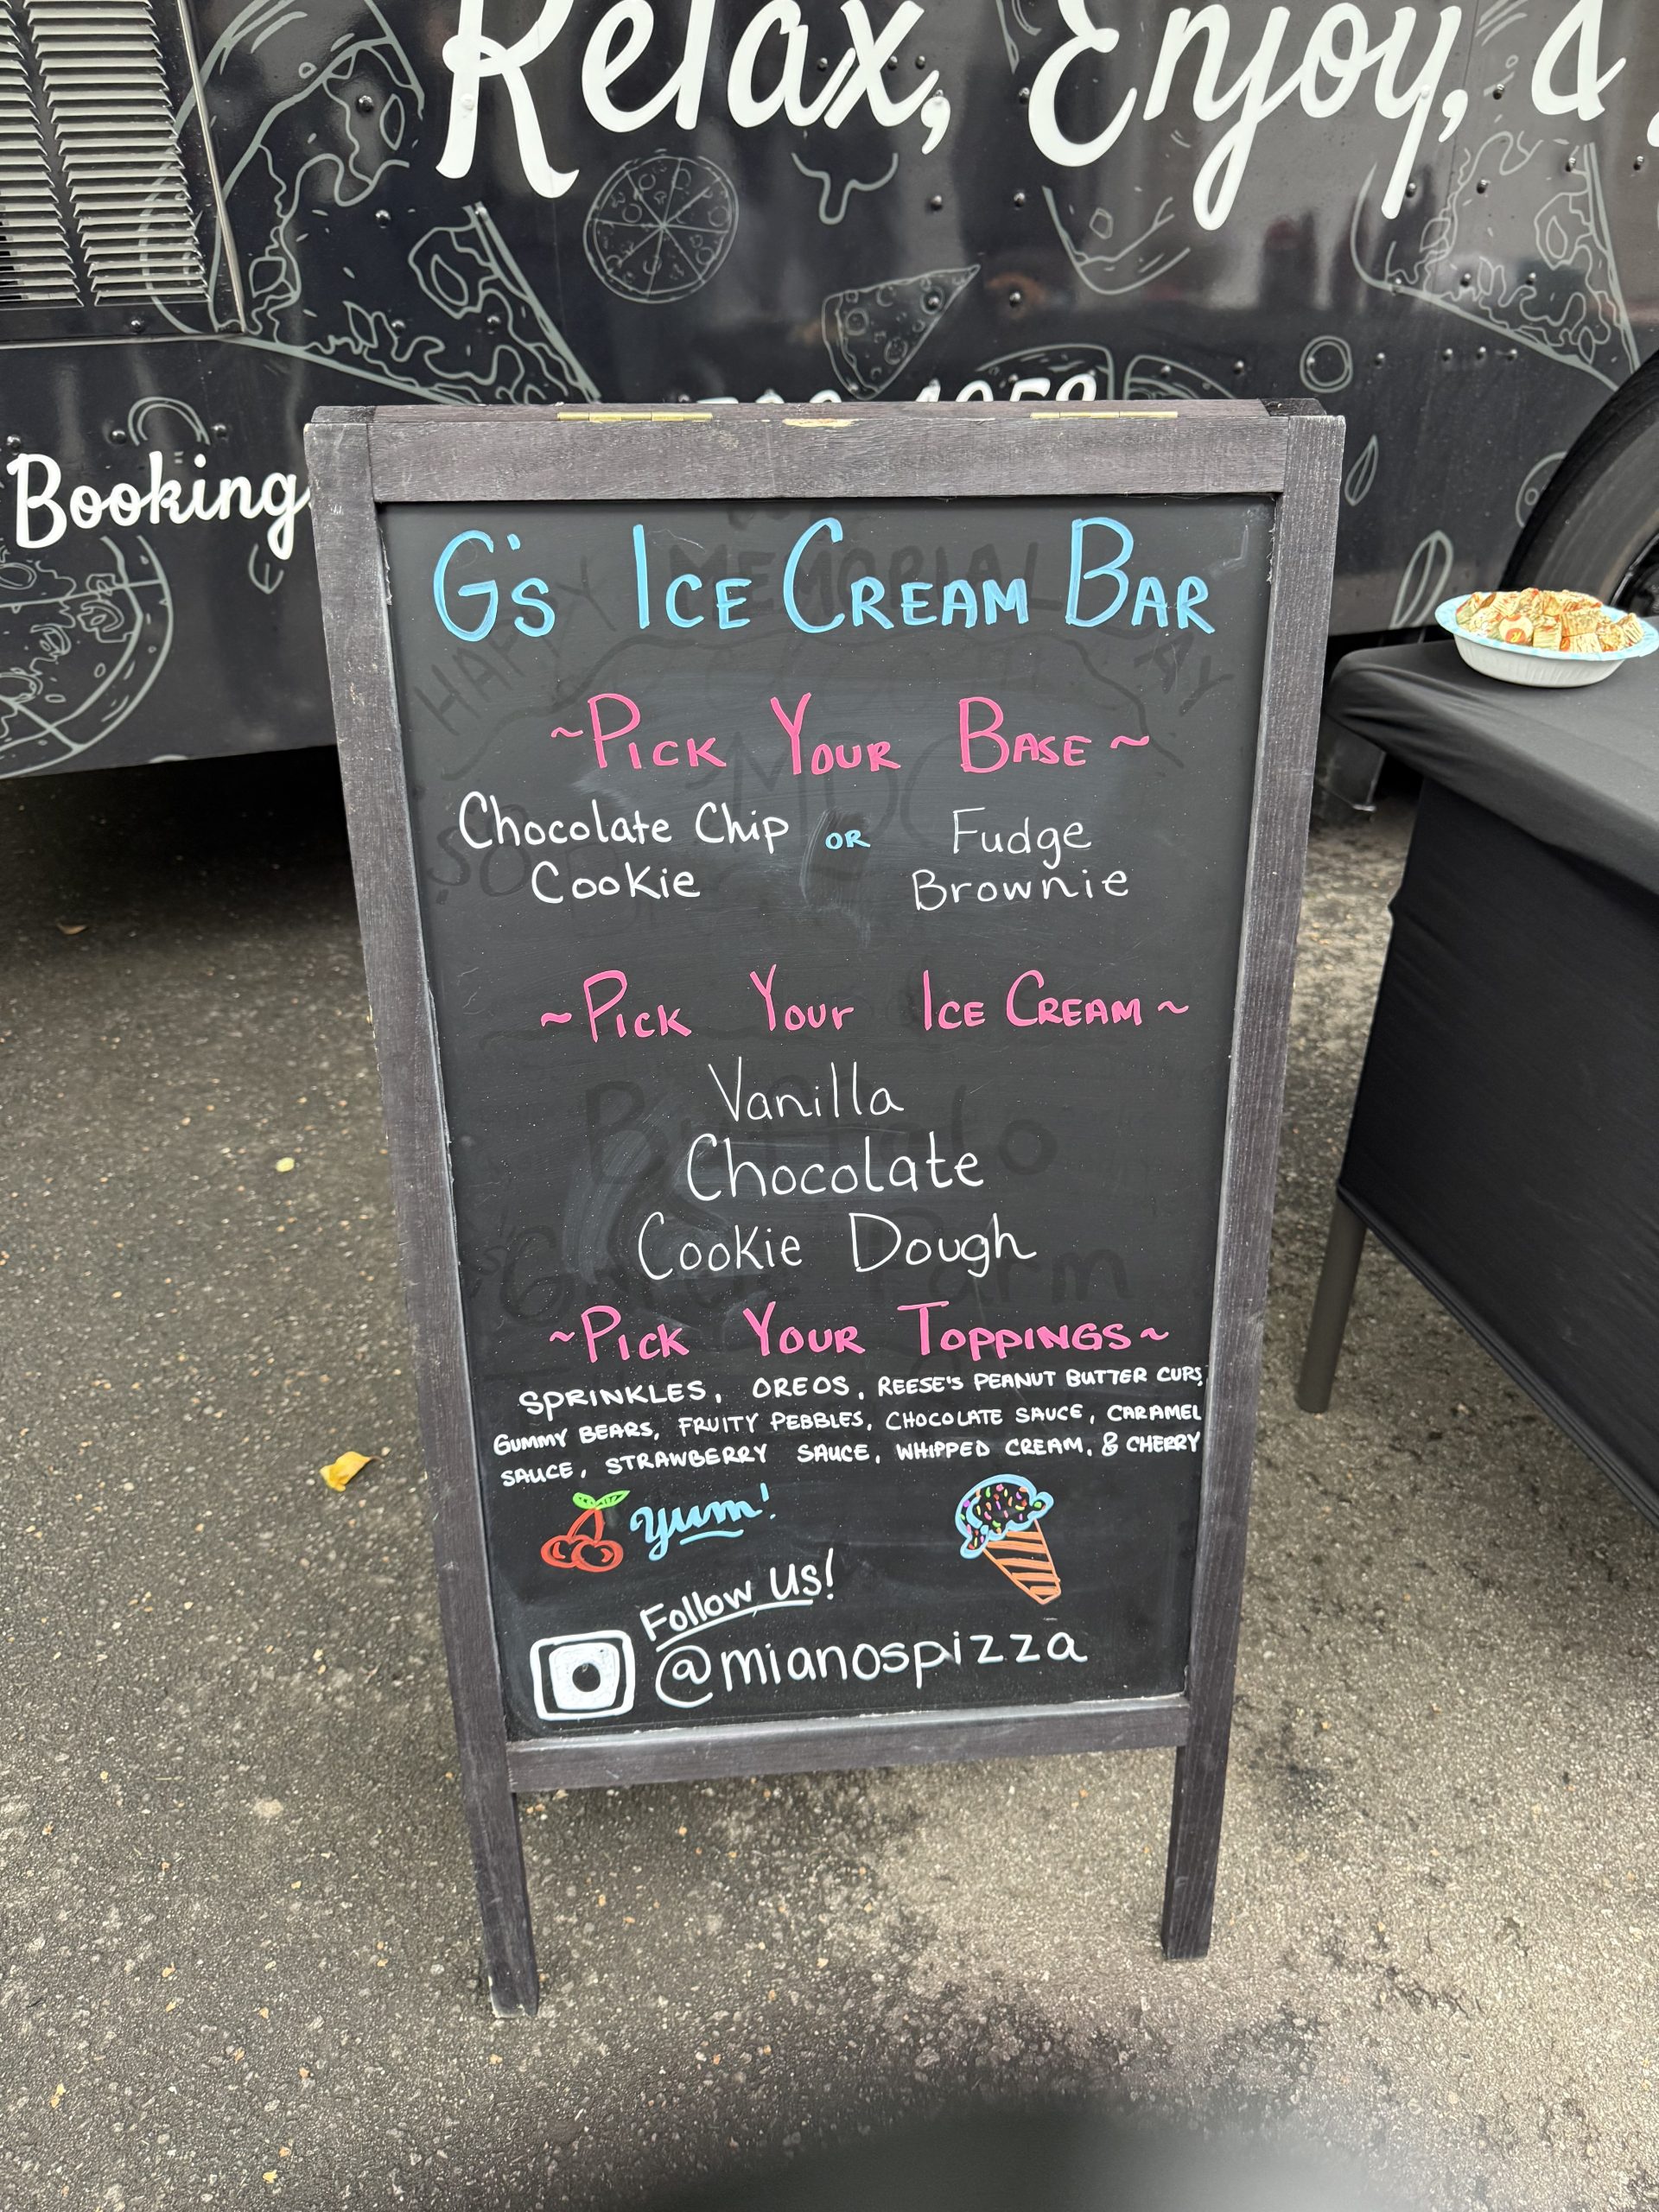 Relax, Enjoy, &
Booking
G's Ice Cream Bar
~Pick Your Base~
Chocolate Chip or Fudge
Cookie Brownie
~Pick Your Ice Cream~
Vanilla
Chocolate
Cookie Dough
~Pick Your Toppings~
SPRINKLES, OREOS, REESE'S PEANUT BUTTER CUPS,
GUMMY BEARS, FRUITY PEBBLES, CHOCOLATE SAUCE, CARAMEL
SAUCE, STRAWBERRY SAUCE, WHIPPED CREAM, & CHERRY
Yum!
Follow Us!
@mianospizza